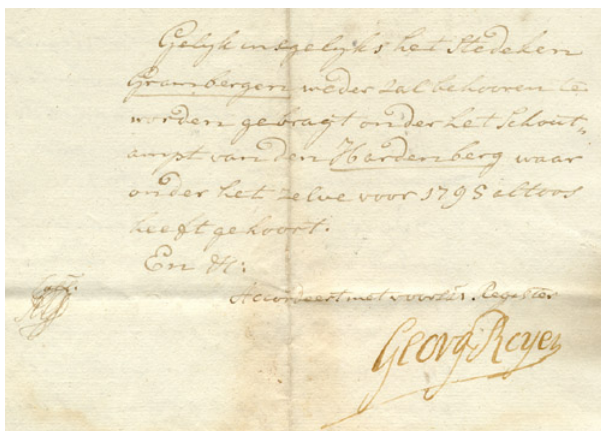 Gelijk insgelijks het Stedeken
Grambergen weder zal behooren te
worden gebragt onder het Schout„
ampt van den Hardenberg waar
onder het zelve voor 1795 altoos
heeft gehoort.
En &c:
Accordeert met voorsz. Register
Georg: Royer